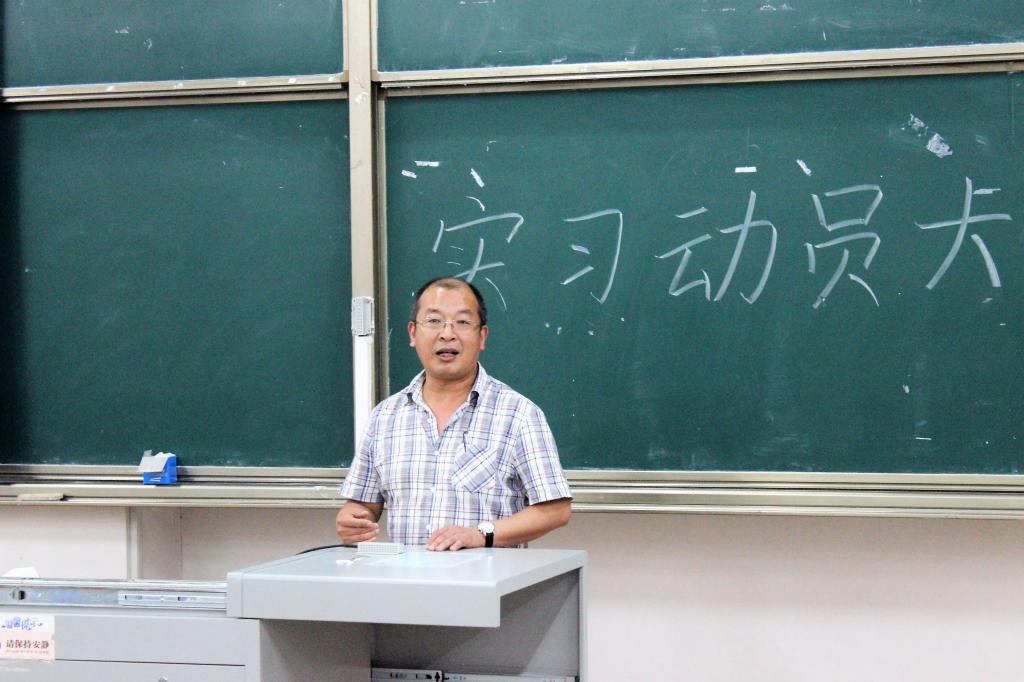 实习动员大
请保持安静